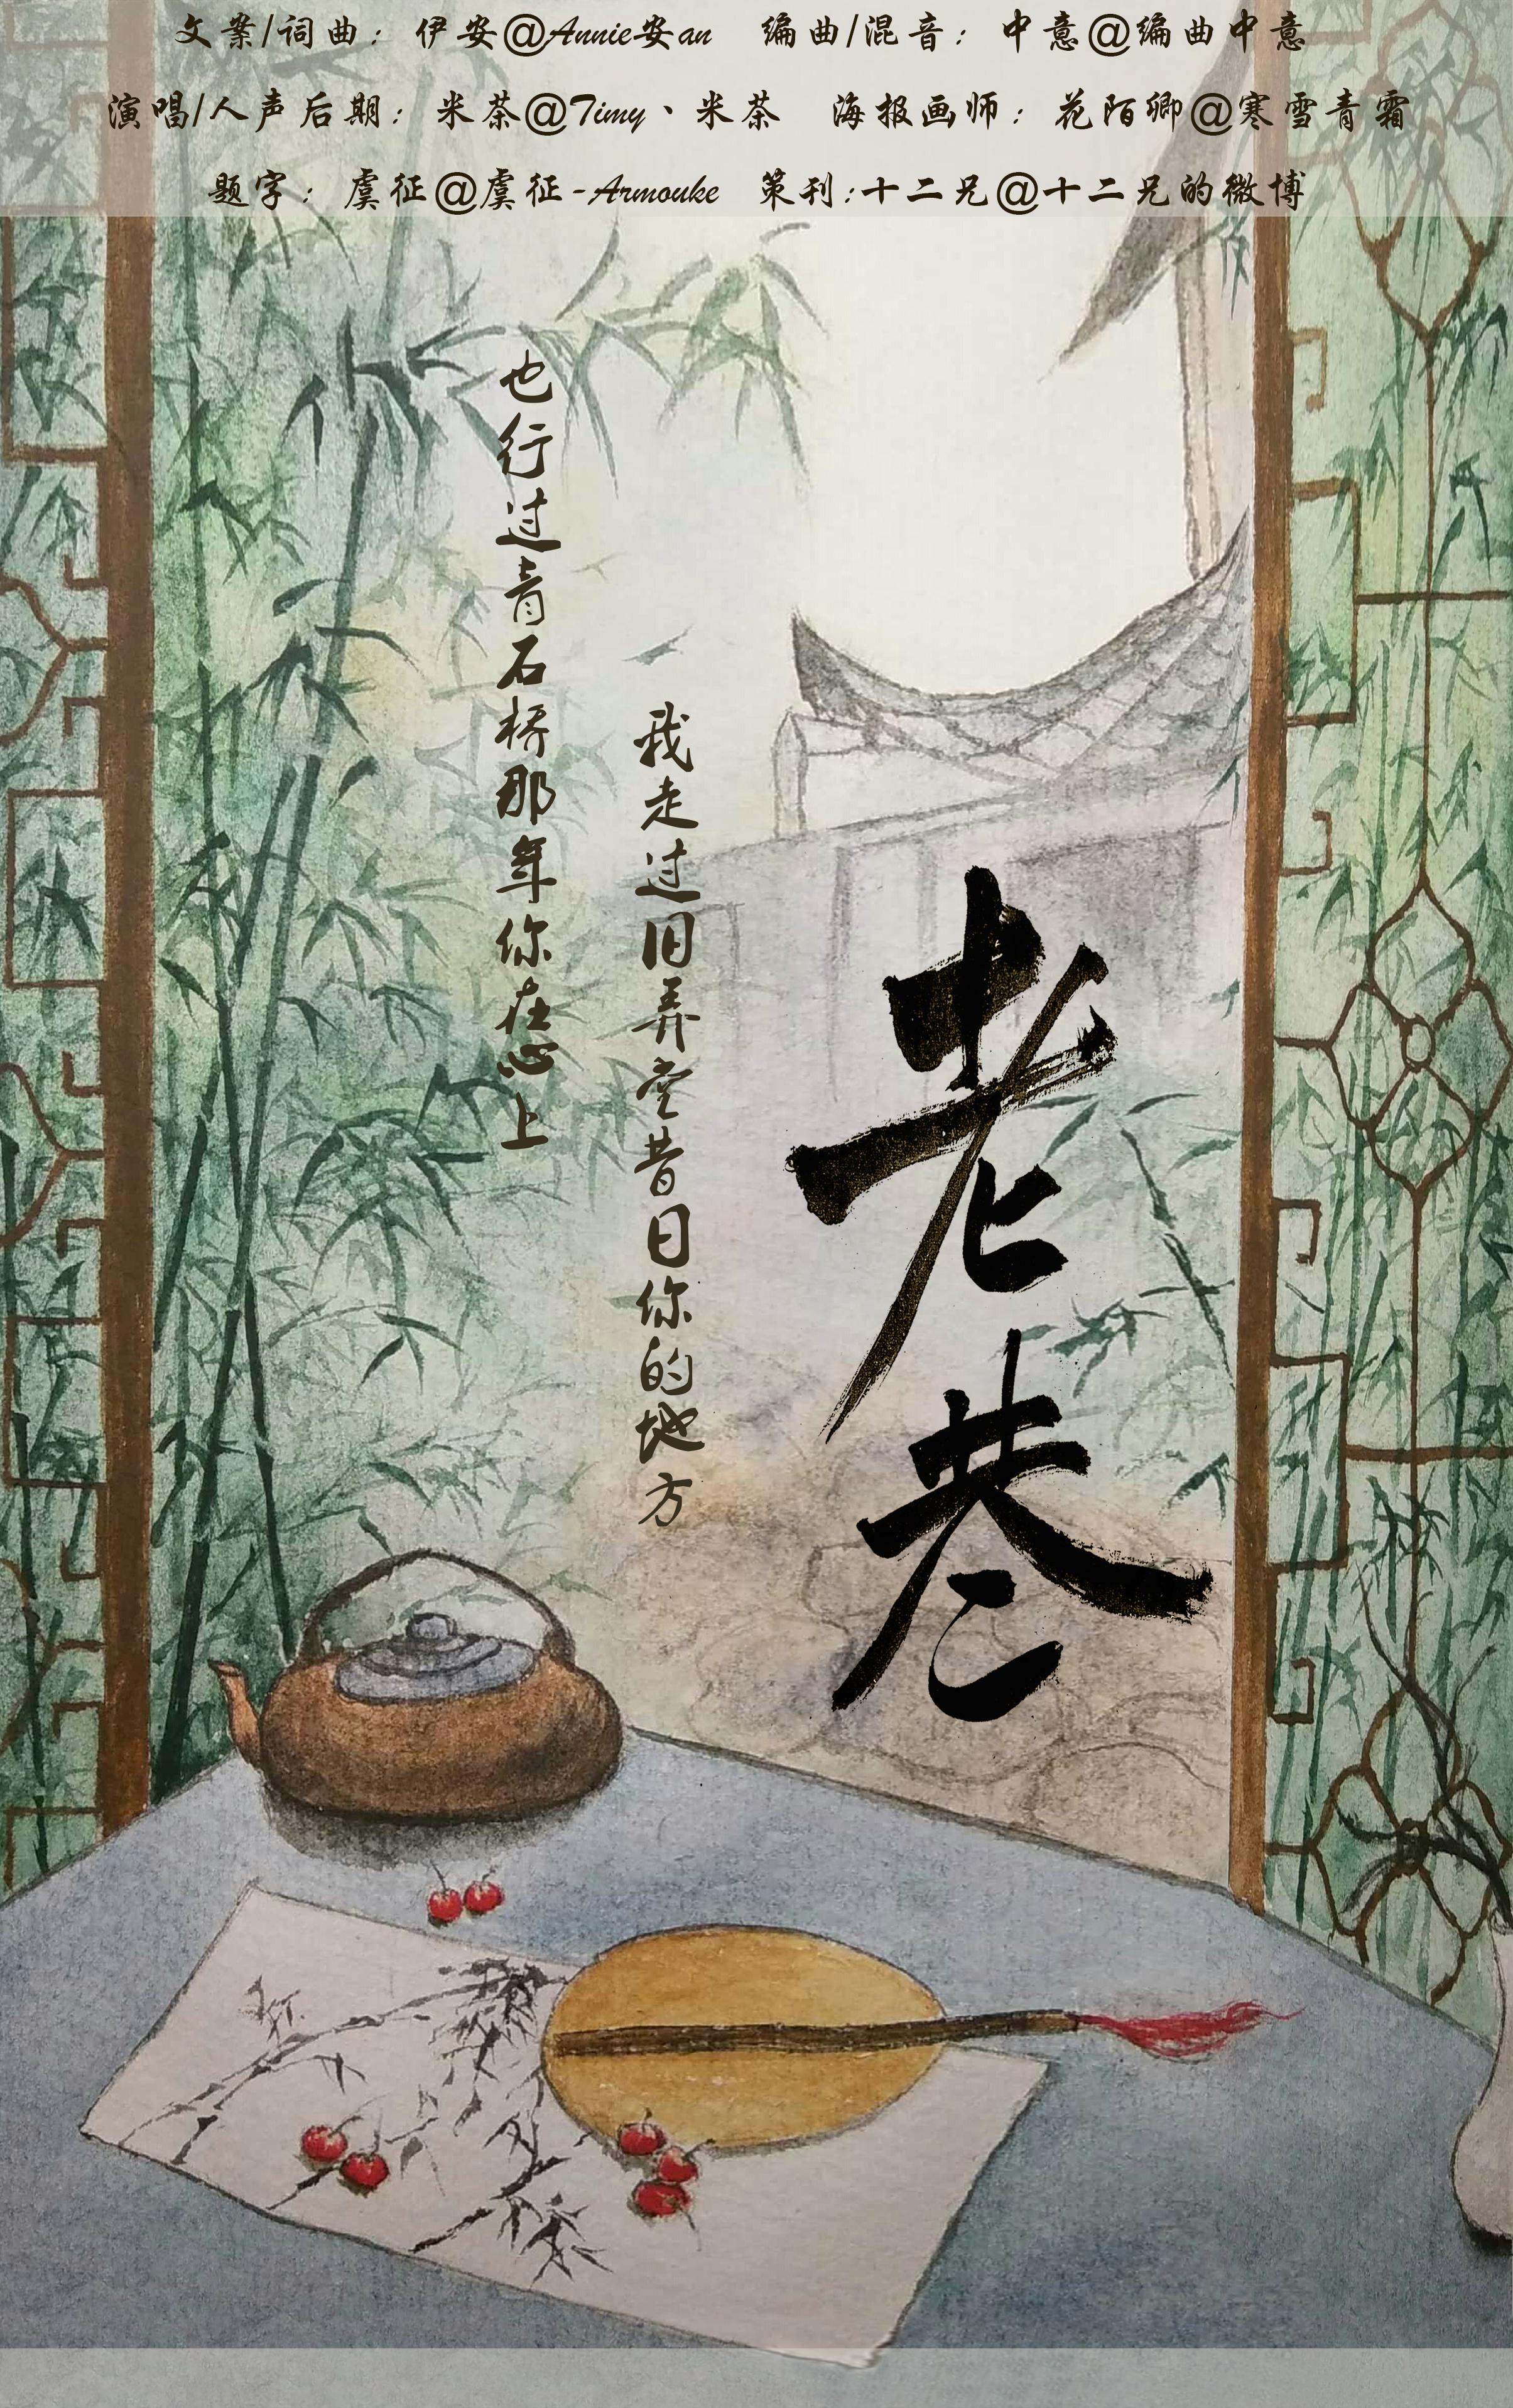 文案/词曲：伊安@Annie安an 编曲/混音：中意@编曲中意
演唱/人声后期：米茶@Timy、米茶 海报画师：花陌卿@寒雪青霜
题字：虞征@虞征-Armouke 策刊:十二兄@十二兄的微博
老巷
我走过旧弄堂昔日你的地方
也行过青石桥那年你在心上